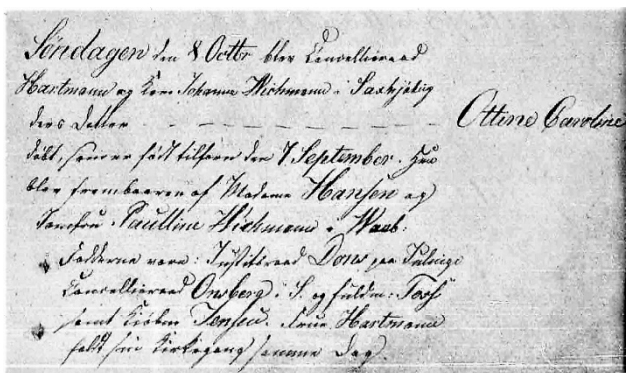 Søndagen den 8 Octbr blev Cancellieraad
Hartmann og Kone Johanna Wichmann i Saxkjøbing
ders Datter — — — — — — Ottine Caroline
døbt, som er født tilforn den 7 September. Hun
blev frembaaren af Madame Hansen og
Jomfru Paulline Wichmann
Fadderne vare: Justitsraad paa
Cancellieraad Onsberg i S. og fuldm:
samt Kiøbm Jensen. Frue Hartmann
holdt sin Kirkegang samme Dag.